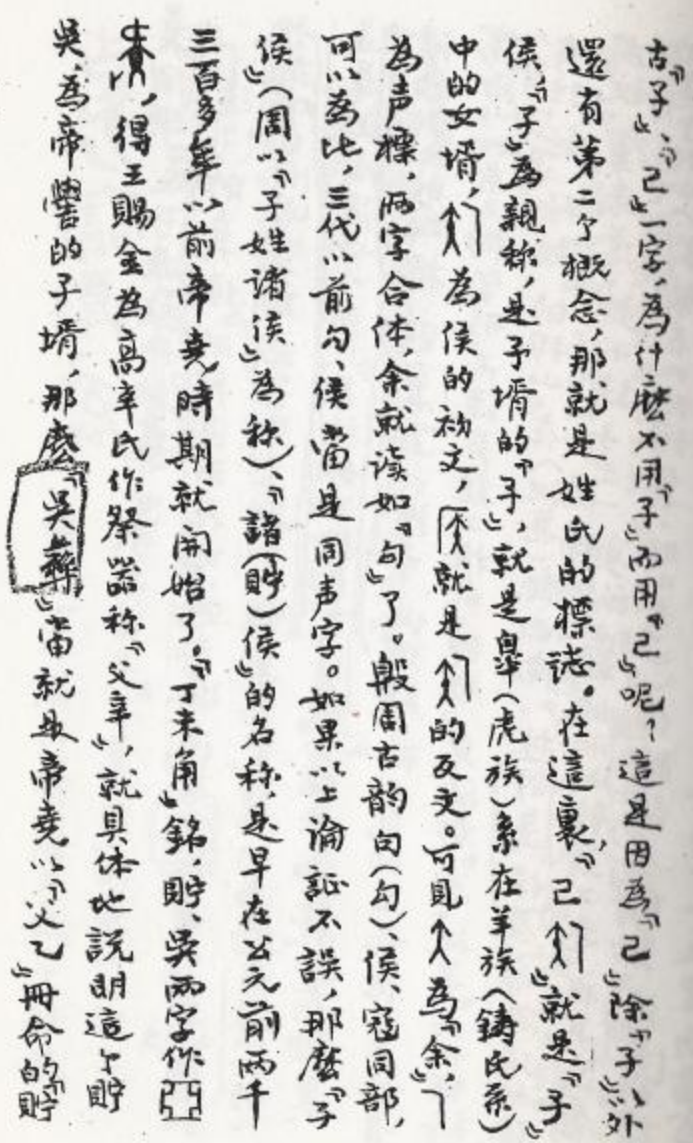 古“子”、“己”一字，為什麽不用“子”而用“己”呢？這是因為“己”除“子”以外
還有第二个概念，那就是姓氏的標誌。在這裏，“己”就是“子
侯”，“子”為親称，是子壻的“子”，就是皋（虎族）系在羊族（鑄氏系）
中的女壻，為侯的初文，就是的反文。可見為“余”，
為声標，两字合体，余就读如“句”了。殷周古韵句（勾）、侯、寇同部，
可以為比，三代以前勾、侯當是同声字。如果以上論証不誤，那麽“子
侯”（周以“子姓诸侯”為称）、“諸（貯）侯”的名称，是早在公元前两千
三百多年以前帝堯時期就開始了。“丁未角”銘，貯、吳两字作
，得王賜金為高辛氏作祭器称“父辛”，就具体地説明這个貯
吳，為帝嚳的子壻，那麽“吳彝”當就是帝堯以“父乙”冊命的“貯